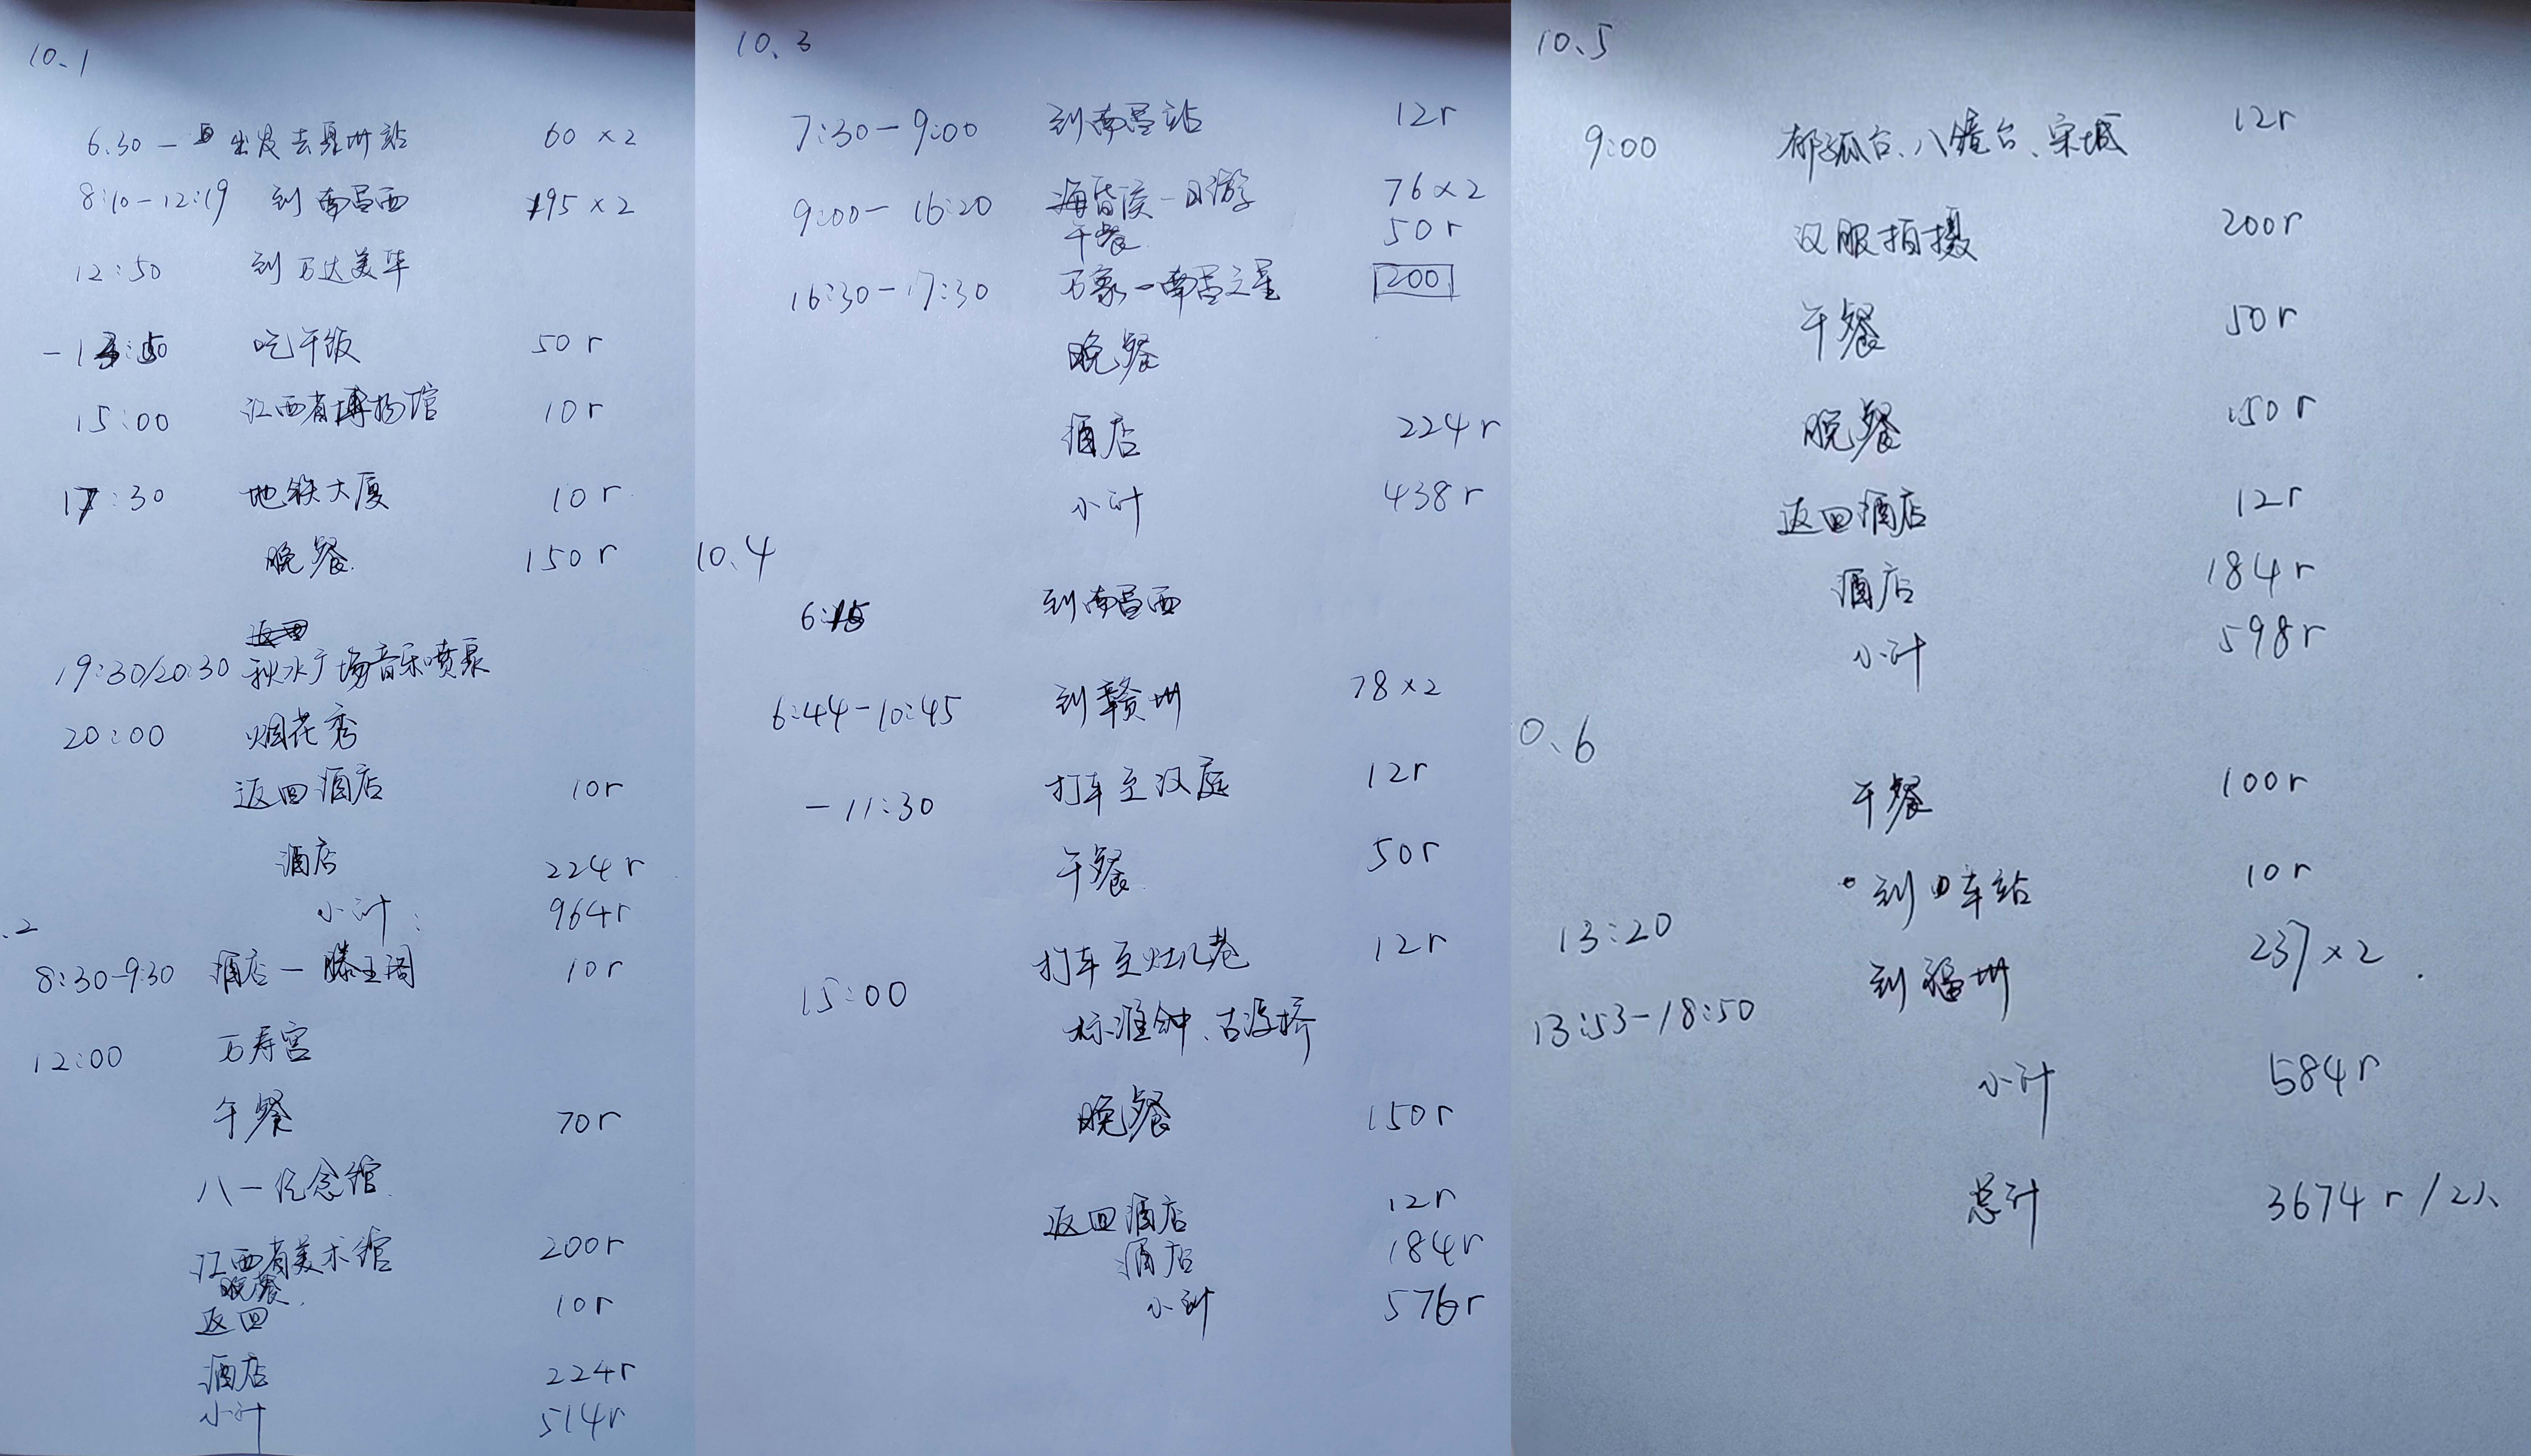 10、1
6.30— 出发去泉州站 60×2
8:10-12:19 到南昌西 195×2
12:50 到万达美华
-13:50 吃午饭 50r
15:00 江西省博物馆 10r
17:30 地铁大厦 10r
晚餐 150r
返回
19:30/20:30 秋水广场音乐喷泉
20:00 烟花秀
返回酒店 10r
酒店 224r
小计: 964r
.2
8:30-9:30 酒店—滕王阁 10r
12:00 万寿宫
午餐 70r
八一纪念馆
江西省美术馆 200r
晚餐
返回 10r
酒店 224r
小计 514r
10、3
7:30-9:00 到南昌站 12r
9:00-16:20 海昏侯一日游 76×2
午餐 50r
16:30-17:30 万象—南昌之星 200
晚餐
酒店 224r
小计 438r
10.4
6:15 到南昌西
6:44-10:45 到赣州 78×2
-11:30 打车至汉庭 12r
午餐 50r
打车至灶儿巷 12r
15:00
标准钟、古浮桥
晚餐 150r
返回酒店 12r
酒店 184r
小计 576r
10、5
9:00 郁孤台、八镜台、宋城 12r
汉服拍摄 200r
午餐 50r
晚餐 150r
返回酒店 12r
酒店 184r
小计 598r
0、6
午餐 100r
到车站 10r
13:20
到福州 237×2
13:53-18:50
小计 584r
总计 3674r/2人